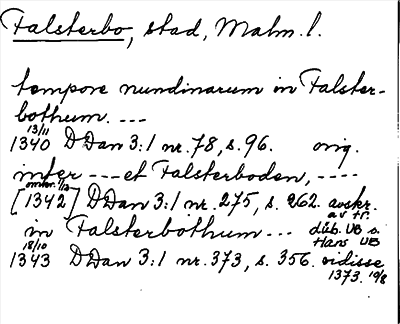 Falsterbo, stad, Malm. l.
tempore nundinarum in Falster-
bothum. ---
13/11
1340 DDan 3:1 nr. 78, s. 96. orig.
inter --- et Falsterboden, ----
omkr. 1/12
[1342] DDan 3:1 nr. 275, s. 262. avskr.
av tr.
in Falsterbothum --- düb. UB o.
Hans UB
18/10
1343 DDan 3:1 nr. 373, s. 356. vidisse
1373. 19/8